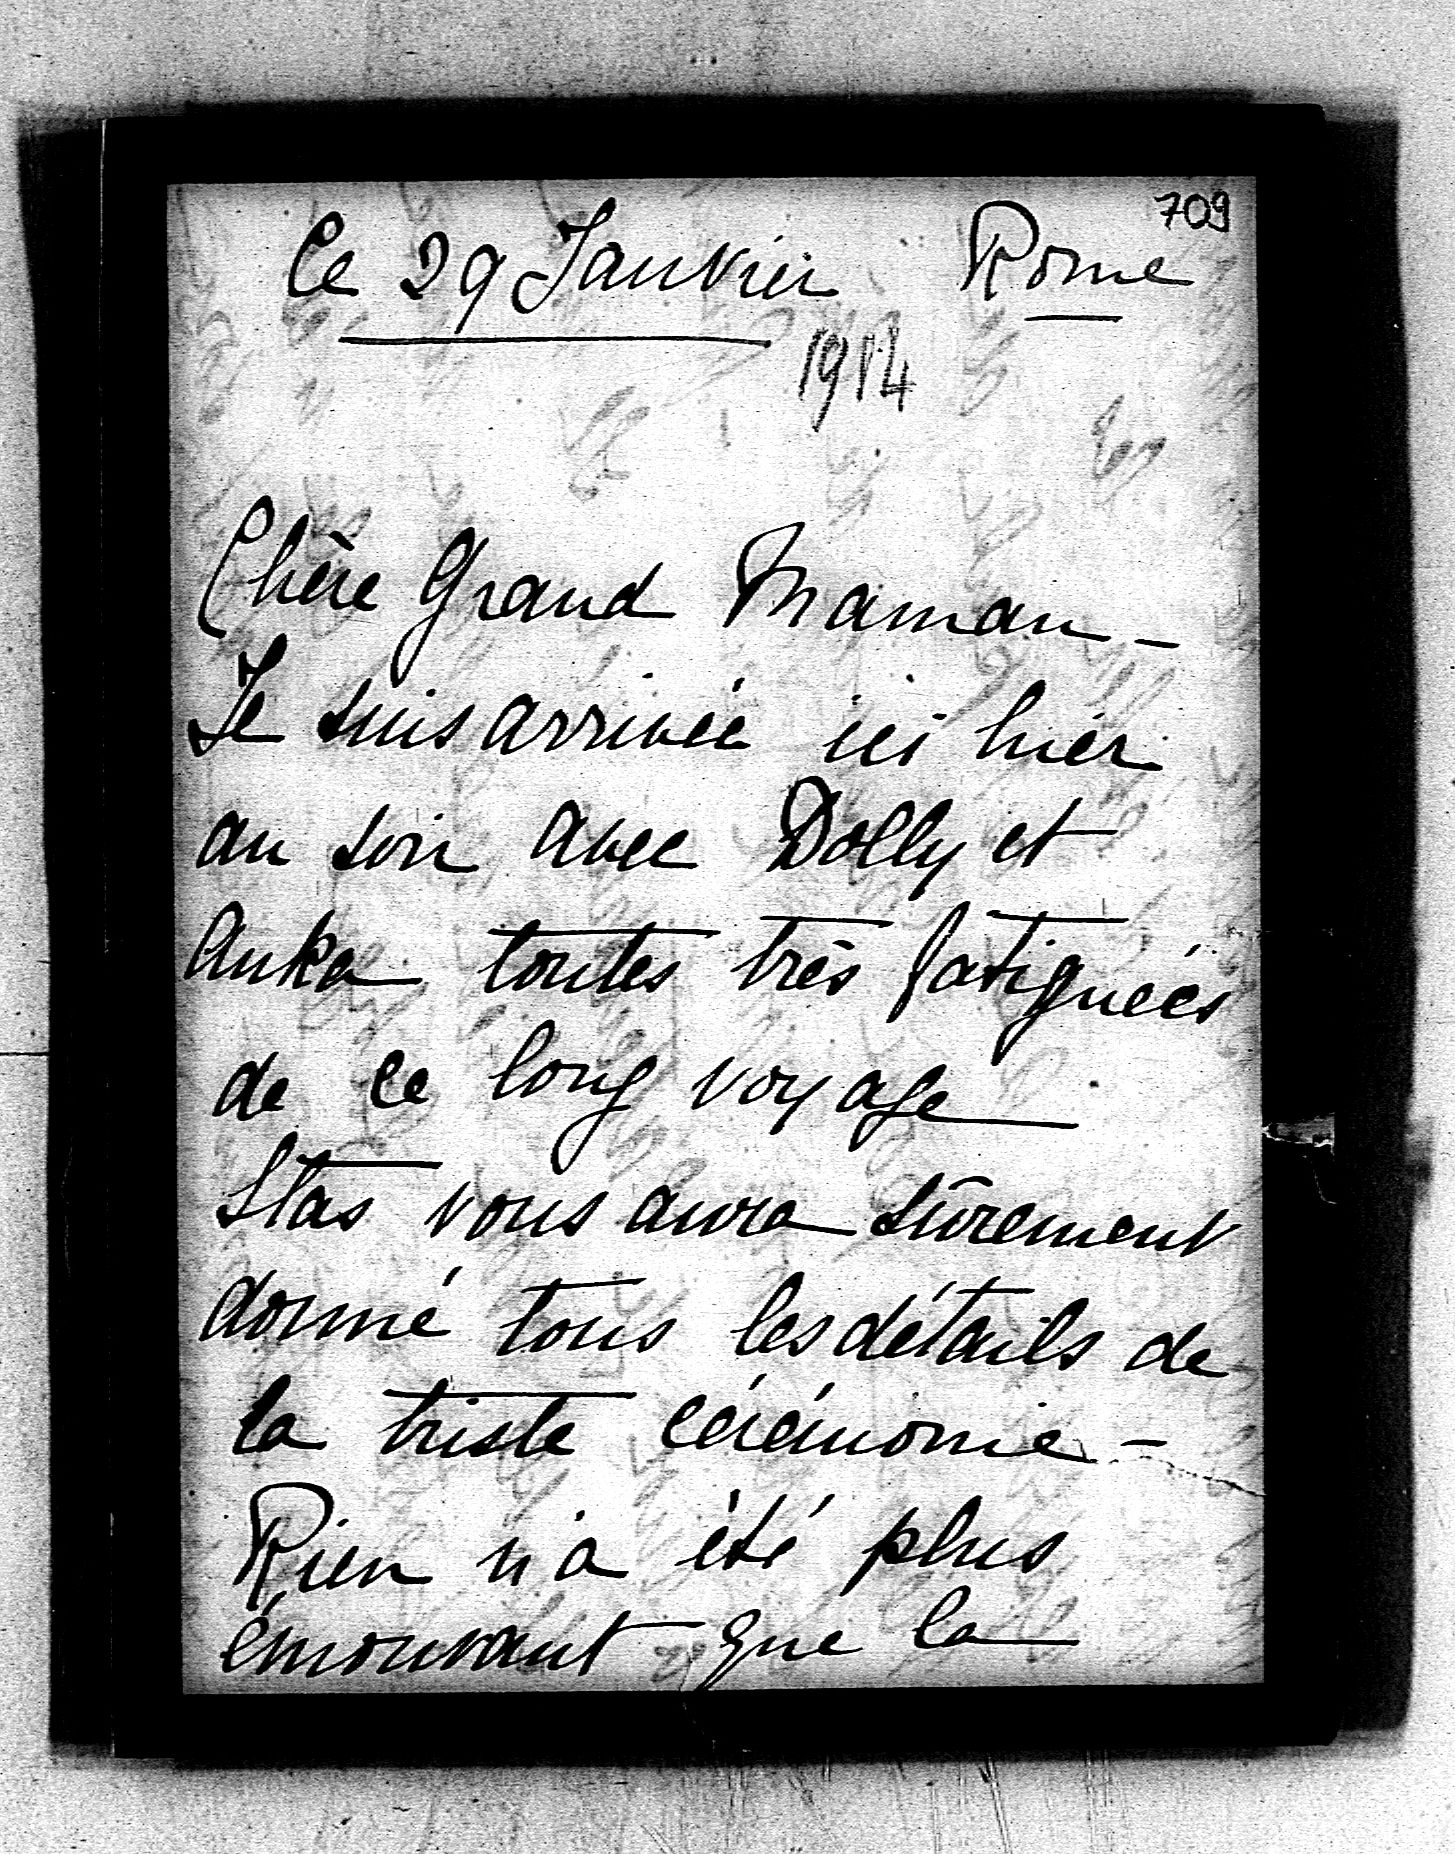 709
Ce 29 Janvier Rome
1914
Chère Grand Maman —
Je suis arrivée ici hier
au soir avec Dolly et
Anka toutes très fatiguées
de ce long voyage
Stas vous aura sûrement
donné tous les détails de
la triste cérémonie —
Rien n'a été plus
émouvant que la